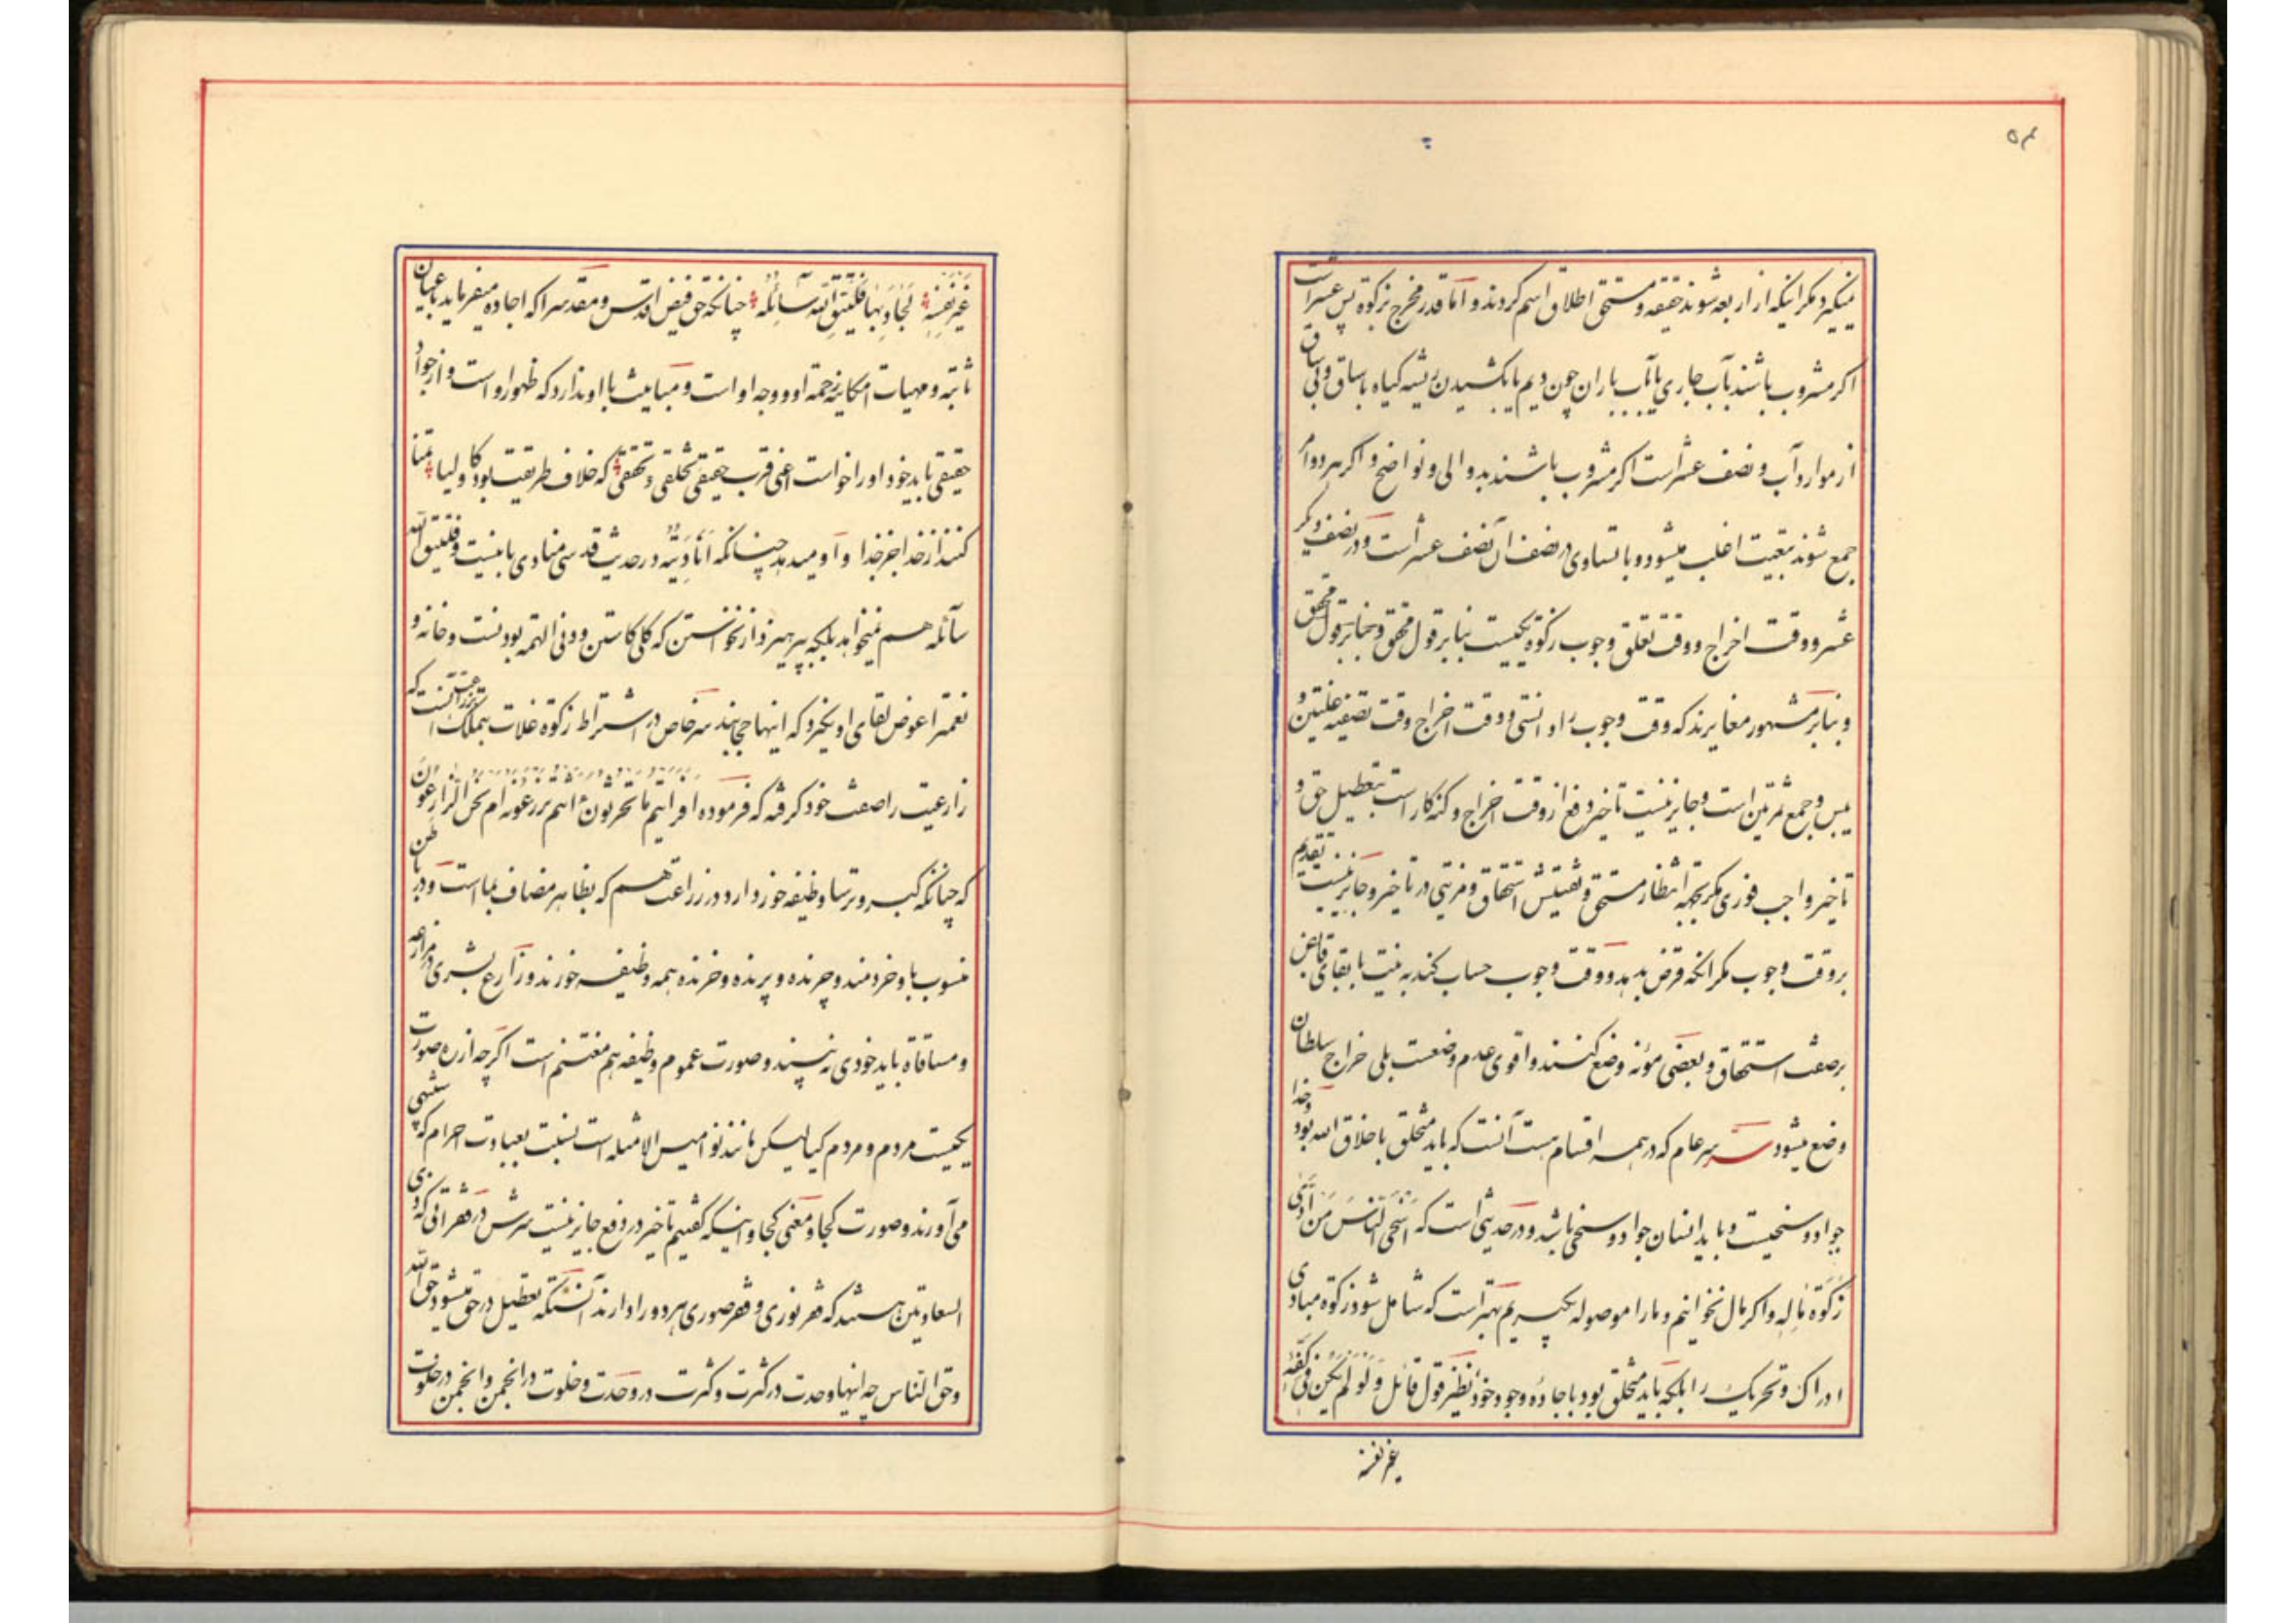 ۵۴
میگیرد مگر اینکه از اربعه شوند حقیقه و مستحق اطلاق اسم گردند و اما قدر مخرج زکوة پس عشر است
اکر مشروب باشند بآب جاری یا بآب باران چون دیم یا بکشیدن ریشه کیاه باساق و بی ساق
از موارد آب و نصف عشر است اکر مشروب باشند بدوالی و نواضح و اکر هر دو امر
جمع شوند بتبعیت اغلب میشود و با تساوی در نصف آن نصف عشر است و در نصف دیگر
عشر و وقت اخراج و وقت تعلق وجوب زکوة یکیست بنابر قول محقق و بنابر قول محقق
و بنابر مشهور مغایرند که وقت وجوب را دانستی و وقت اخراج وقت تصفیه غلتین و
یبس و جمع ثمرتین است و جایز نیست تاخیر دفع از وقت اخراج و کنه کار است بتعطیل حق و
تاخیر واجب فوری مگر بجهة انتظار مستحق و تفتیش استحقاق و مزیتی در تاخیر و جایز نیست تقدیم
بر وقت وجوب مکر انکه قرض بدهد و وقت وجوب حساب کند به نیت با بقای قابض
بر صفت استحقاق و بعضی مؤنه وضع کنند و اقوی عدم وضعست بلی خراج سلطان
وضع میشود سر عام که در همه اقسام هست آنست که باید متخلق باخلاق الله بود و خدا
جواد و سخیست و باید انسان جواد و سخی باشد و در حدیثی است که اسخی الناس من ادی
زکوة ماله و اکر مال نخوانیم و ما را موصوله بگیریم بهتر است که شامل شود زکوة مبادی
ادراک و تحریک را بلکه باید متخلق بود باجاده وجود خود نظیر قول قائل و لو لم یکن فی کفه
غیر نفسه
غیر نفسه لجاد بها فلیتق الله سائله چنانکه حق فیض اقدس و مقدسرا که اجاده میفرماید باعیان
ثابته و مهیات امکانیه رحمة او و وجه او است و مباینت با او ندارد که ظهور او است و از جواد
حقیقی باید خود او را خواست اعنی قرب حقیقی تخلقی و تحققی که خلاف طریقت بود کاولیا تمنا
کنند از خدا جز خدا و او میدهد چنانکه انا دیته در حدیث قدسی منادی باینست و فلیتق الله
سائله هم نمیخواهد بلکه بپرهیزد از نخواستن که کلی کاستن و دنی الهمه بودنست و خانه و
نعمترا عوض لقای او بگیرد که اینها حجابند سر خاص در اشتراط زکوة غلات بتملک بزراعت آنست که
زارعیت را صفت خود گرفته که فرموده افرایتم ما تحرثون ءانتم تزرعونه ام نحن الزارعون
که چنانکه گبر و ترسا وظیفه خور دارد در زراعت هم که بظاهر مضاف بما است و در باطن
منسوب باو خردمند و چرنده و پرنده و خزنده همه وظیفه خورند و زارع بشری در مزارعه
و مساقاة باید خودی نه بیند و صورت عموم وظیفه هم مغتنم است اگرچه از ره صورت
یکیست مردم و مردم گیا لیکن مانند نوامیس الامثله است نسبت بعبادت احرام که بی
می آورند و صورت کجا و معنی کجا و اینکه گفتیم تاخیر در دفع جایز نیست سرش در فقرائی که ذی
السعادتین هستند که فقر نوری و فقر صوری هر دو را دارند آنستکه تعطیل در حق میشود حق الله
و حق الناس چه اینها وحدت در کثرت و کثرت در وحدت و خلوت در انجمن و انجمن در خلوت